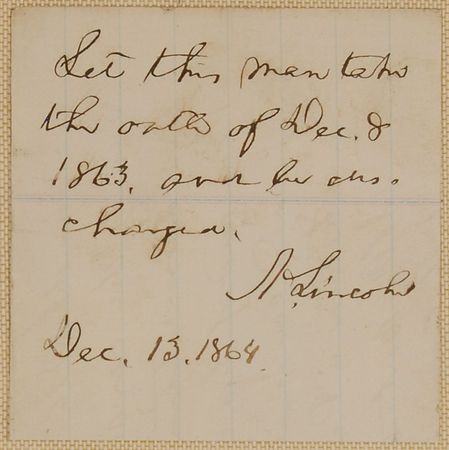 Let this man take
the oath of Dec. 8
1863, and be dis-
charged.
A. Lincoln
Dec. 13, 1864